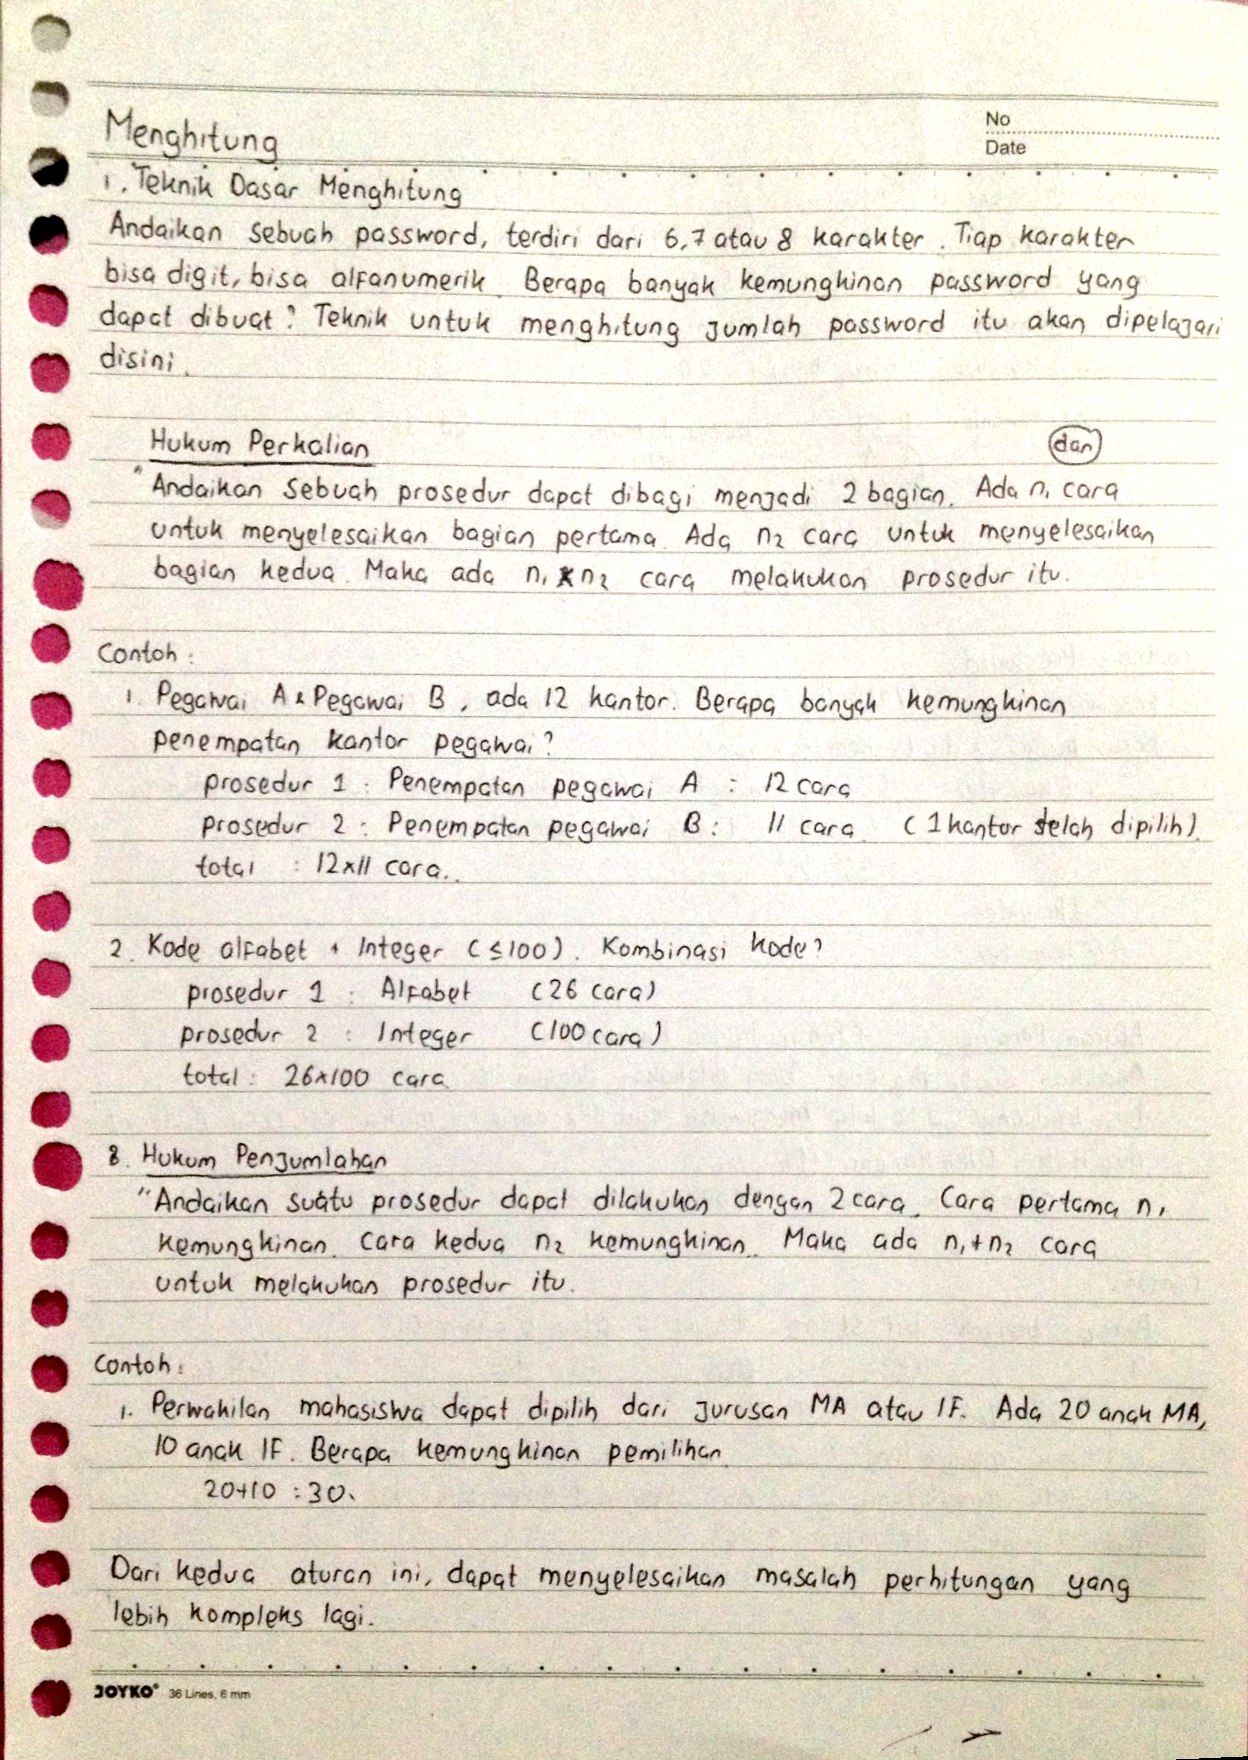 Menghitung
No
Date
1. Teknik Dasar Menghitung
Andaikan sebuah password, terdiri dari 6,7 atau 8 karakter. Tiap karakter
bisa digit, bisa alfanumerik. Berapa banyak kemungkinan password yang
dapat dibuat? Teknik untuk menghitung jumlah password itu akan dipelajari
disini.
Hukum Perkalian
dan
"Andaikan sebuah prosedur dapat dibagi menjadi 2 bagian. Ada n₁ cara
untuk menyelesaikan bagian pertama. Ada n₂ cara untuk menyelesaikan
bagian kedua. Maka ada n₁ x n₂ cara melakukan prosedur itu.
Contoh:
1. Pegawai A & Pegawai B, ada 12 kantor. Berapa banyak kemungkinan
penempatan kantor pegawai?
prosedur 1 : Penempatan pegawai A : 12 cara
prosedur 2 : Penempatan pegawai B : 11 cara (1 kantor telah dipilih)
total : 12x11 cara..
2. Kode alfabet + Integer (≤100). Kombinasi kode?
prosedur 1 : Alfabet (26 cara)
prosedur 2 : Integer (100 cara)
total : 26x100 cara
8. Hukum Penjumlahan
"Andaikan suatu prosedur dapat dilakukan dengan 2 cara. Cara pertama n₁
kemungkinan. Cara kedua n₂ kemungkinan. Maka ada n₁+n₂ cara
untuk melakukan prosedur itu.
Contoh:
1. Perwakilan mahasiswa dapat dipilih dari jurusan MA atau IF. Ada 20 anak MA,
10 anak IF. Berapa kemungkinan pemilihan.
20+10 : 30.
Dari kedua aturan ini, dapat menyelesaikan masalah perhitungan yang
lebih kompleks lagi.
JOYKO® 36 Lines, 6 mm